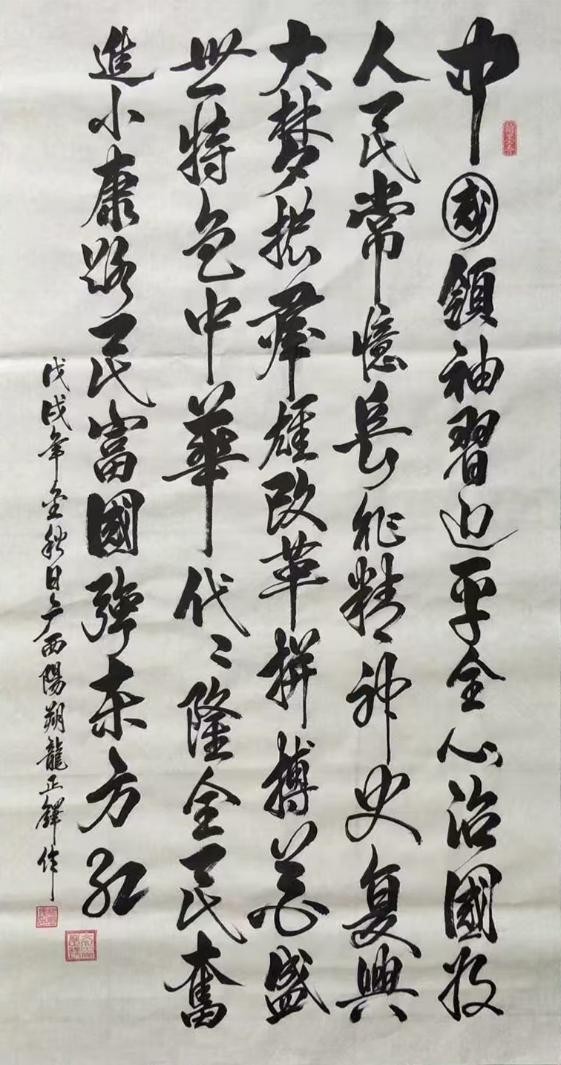 中國領袖習近平全心治國
人民常憶長征精神史復興
大夢群雄改革拼搏盛
世特色中華代々隆全民奮
進小康路民富國強东方红
戊戌年金秋日广西陽朔龍正鐸作